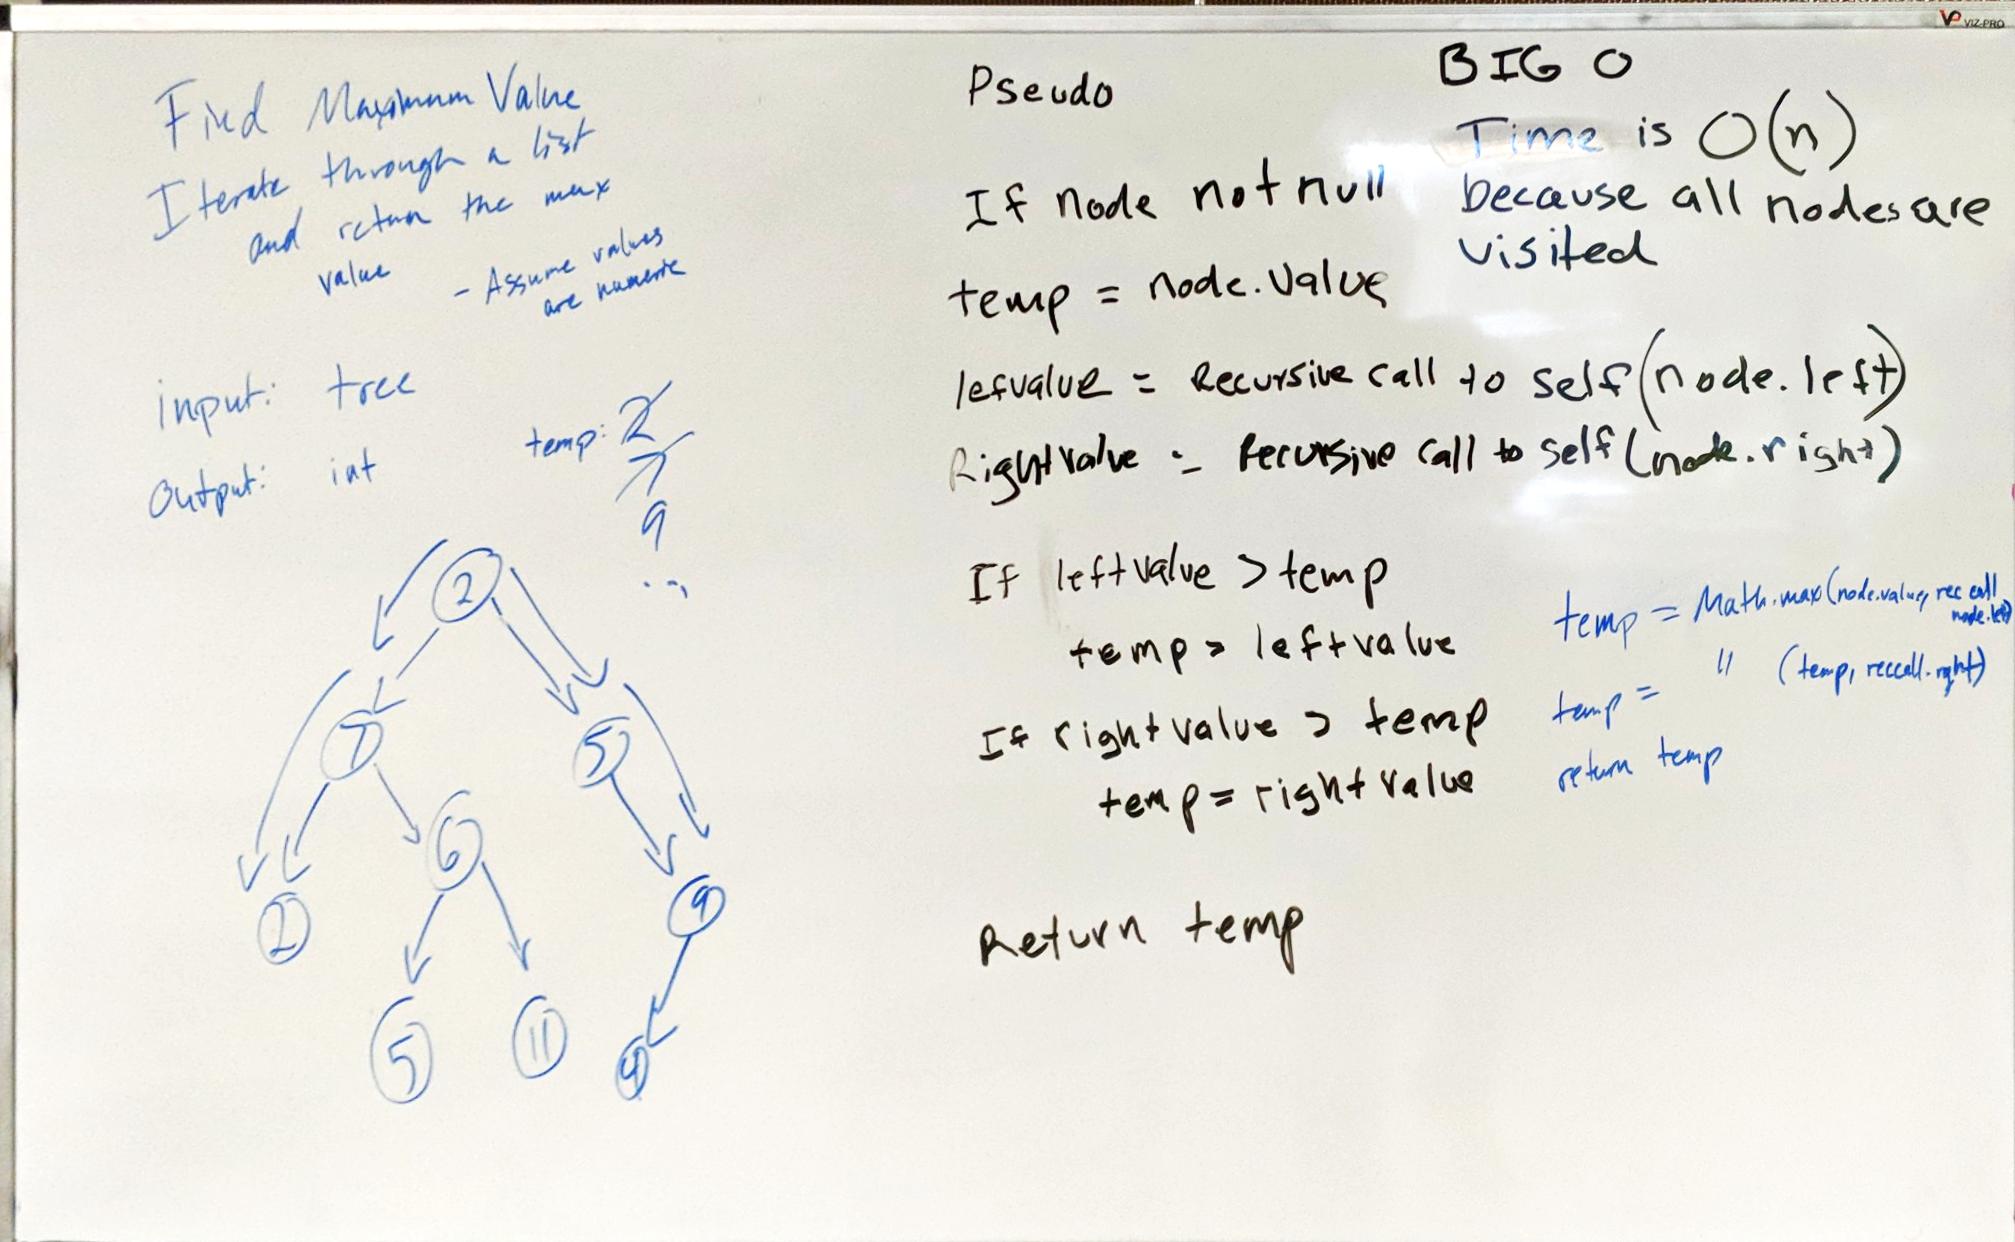 VIZ-PRO
Find Maximum Value
Iterate through a list
and return the max
value
- Assume values
are numeric
input: tree
Output: int
temp: 2
7
9
...
2
7
5
6
2
9
5
11
4
Pseudo
If node not null
temp = node.value
lefvalue = Recursive call to self(node.left)
Rightvalue = Recursive call to self(node.right)
If leftvalue > temp
temp = leftvalue
If rightvalue > temp
temp = rightvalue
Return temp
BIG O
Time is O(n)
because all nodes are
visited
temp = Math.max(node.value, rec call
node.left)
temp = " (temp, reccall.right)
return temp